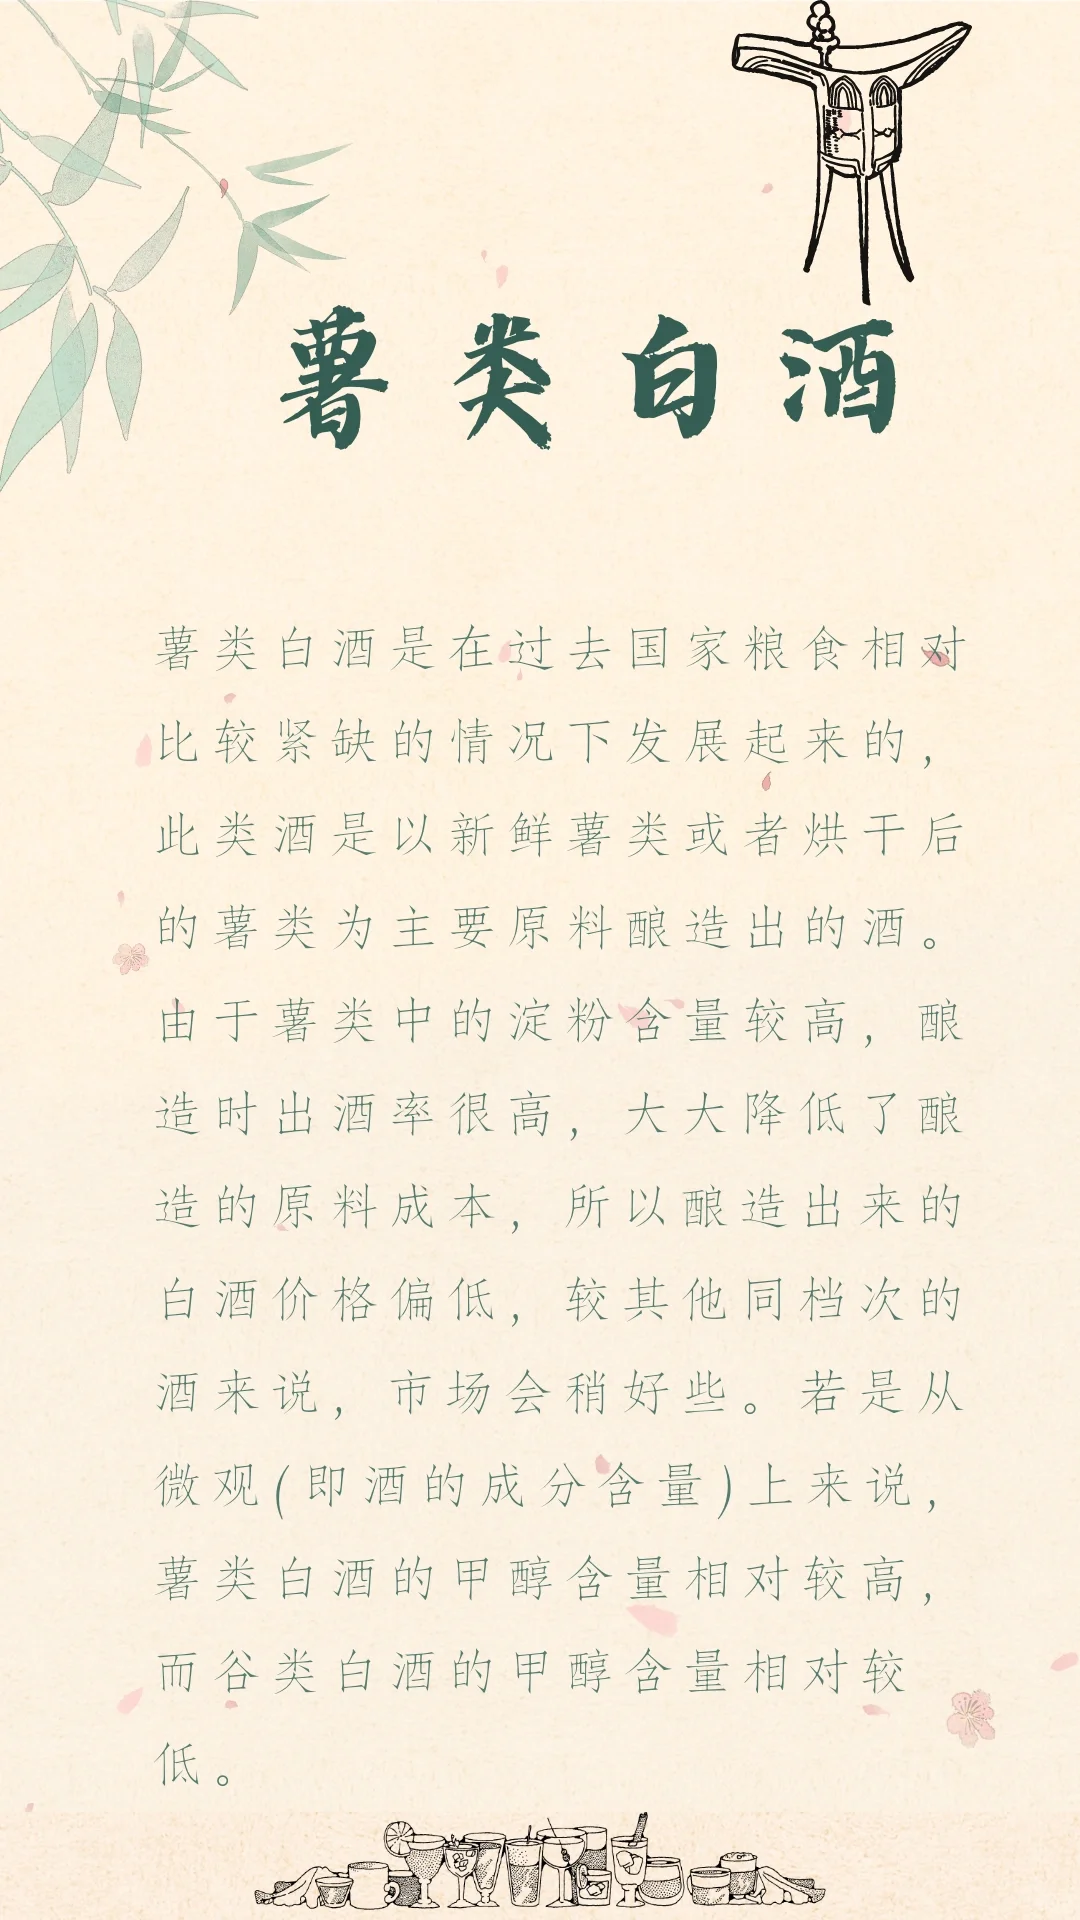 薯类白酒
薯类白酒是在过去国家粮食相对
比较紧缺的情况下发展起来的，
此类酒是以新鲜薯类或者烘干后
的薯类为主要原料酿造出的酒。
由于薯类中的淀粉含量较高，酿
造时出酒率很高，大大降低了酿
造的原料成本，所以酿造出来的
白酒价格偏低，较其他同档次的
酒来说，市场会稍好些。若是从
微观(即酒的成分含量)上来说，
薯类白酒的甲醇含量相对较高，
而谷类白酒的甲醇含量相对较
低。